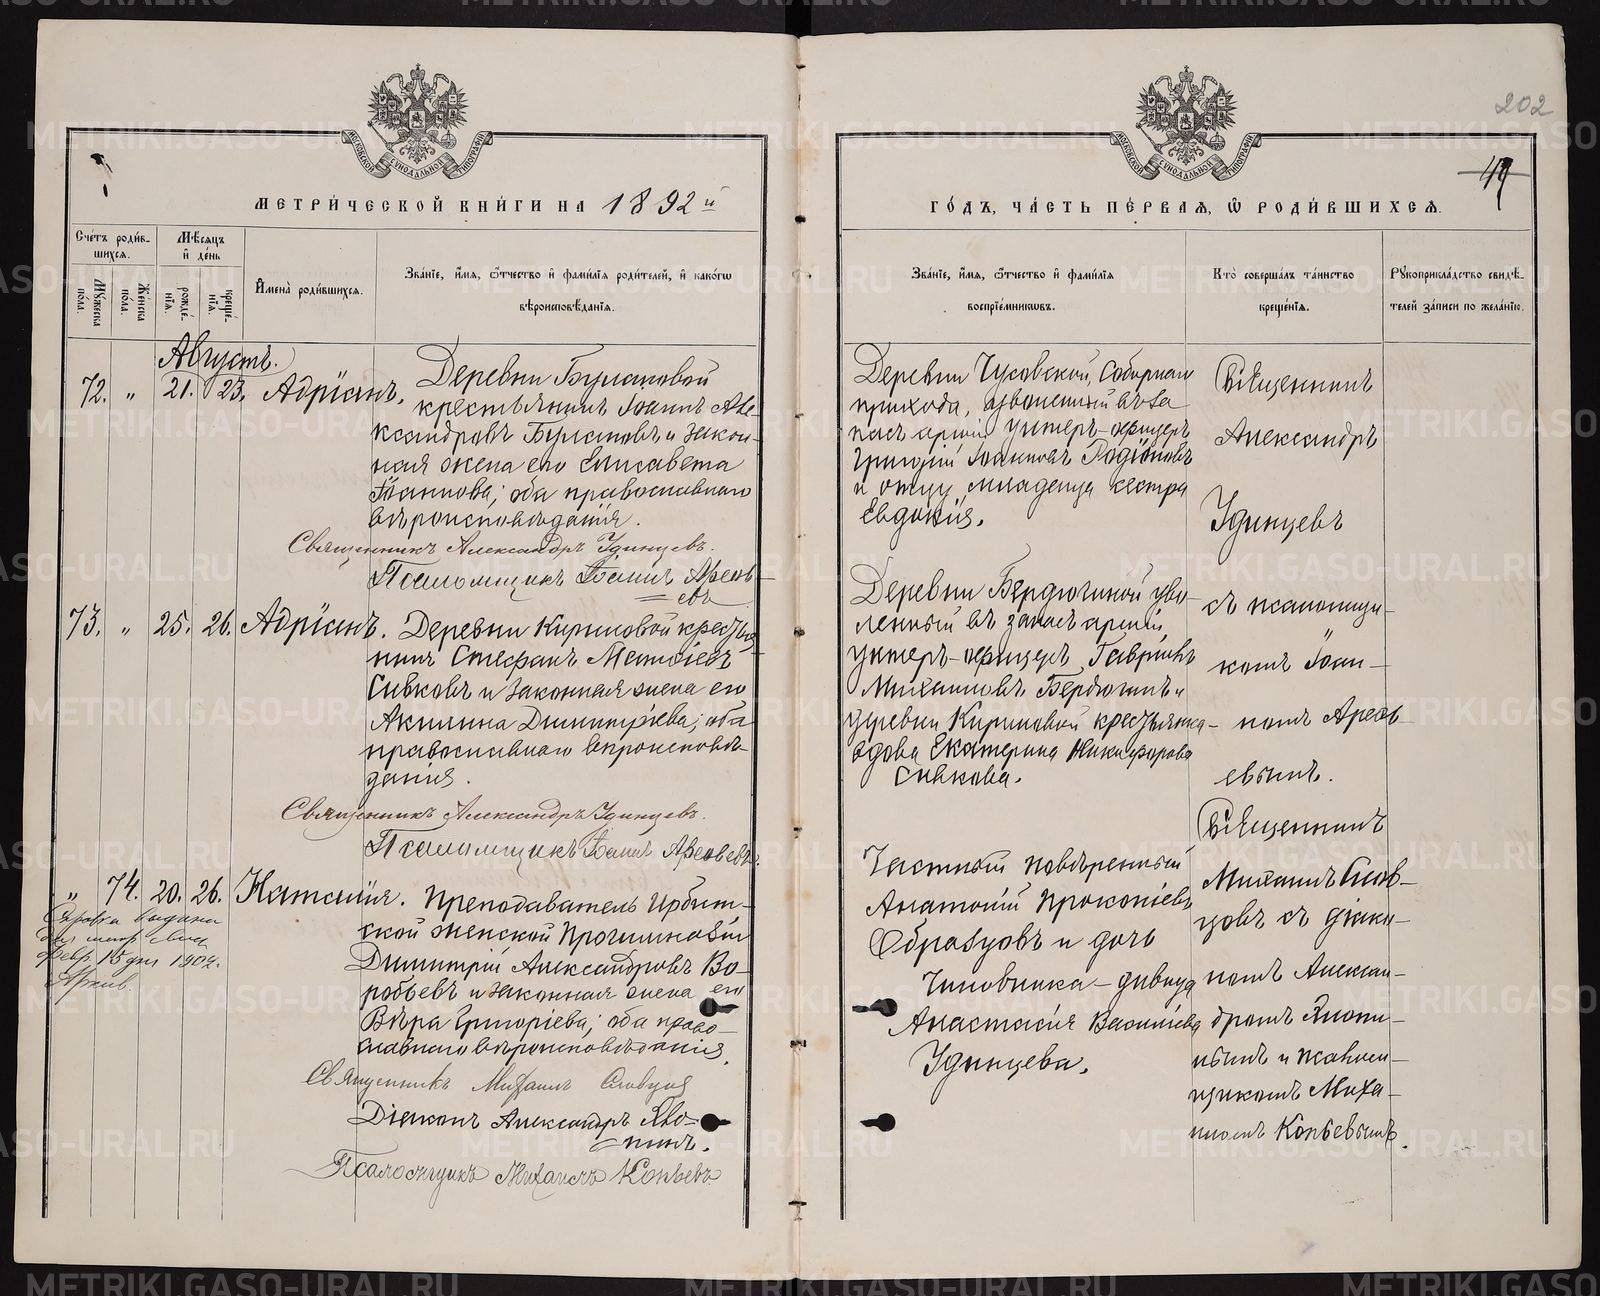 202
49
МЕТРИ́ЧЕСКОЙ КНИ́ГИ НА 1892й
Сче́тъ роди́в-
шихся.
Му́жеска
по́ла.
Же́нска
по́ла.
Мѣ́сяцъ
и҆ де́нь
рожде́-
нїя.
креще́-
нїя.
И҆мена̀ роди́вшихся.
Зва́нїе, и҆́мя, ѻ҆́тчество и҆ фами́лїя роди́телей, и҆ како́гѡ
вѣроисповѣ́данїя.
Августъ.
72. „ 21. 23. Адріанъ.
Деревни Булановой
крестьянинъ Іоаннъ Але-
ксандровъ Булановъ и закон-
ная жена его Елисавета
Іоаннова; оба православнаго
вѣроисповѣданія.
Священникъ Александръ Удинцевъ.
Псаломщикъ Іоаннъ Арефь-
евъ
73. „ 25. 26. Адріанъ.
Деревни Кириловой крестья-
нинъ Стефанъ Матѳіевъ
Сивковъ и законная жена его
Акилина Димитріева; оба
православнаго вѣроисповѣ-
данія.
Священникъ Александръ Удинцевъ.
Псаломщикъ Іоаннъ Арефьевъ.
„ 74. 20. 26. Наталія.
Справка выдана
Февр. 15 дня 1904.
Преподаватель Ирбит-
ской женской Прогимназіи
Димитрій Александровъ Во-
робьевъ и законная жена его
Вѣра Григоріева; оба право-
славнаго вѣроисповѣданія.
Священникъ Михаилъ Словцовъ
Діаконъ Александръ Япо-
нинъ.
Псаломщикъ Михаилъ Копьевъ
ГО́ДЪ, ЧА́СТЬ ПЕ́РВАЯ, Ѡ҆ РОДИ́ВШИХСЯ.
Зва́нїе, и҆́мя, ѻ҆́тчество и҆ фами́лїя
воспрїе́мниковъ.
Кто̀ соверша́лъ та́инство
креще́нїя.
Рꙋкоприкла́дство свидѣ́-
телей за́писи по жела́нїю.
Деревни Чусовской, Соборнаго
прихода, уволенный въ за
пасъ арміи унтеръ-офицеръ
Григорій Іоанновъ Родіоновъ
и отцу младенца сестра
Евдокія.
Священникъ
Александръ
Удинцевъ
съ псаломщи-
комъ Іоан-
номъ Арефь-
евымъ.
Деревни Бердюгиной уво-
ленный въ запасъ арміи
унтеръ-офицеръ Гавріилъ
Михаиловъ Бердюгинъ и
деревни Кириловой крестьянка-
вдова Екатерина Никифорова
Сивкова.
Частный повѣренный
Анатолій Прокопіевъ
Образцовъ и дочь
Чиновника-дивица
Анастасія Василіева
Удинцева.
Священникъ
Михаилъ Слов-
цовъ съ діако-
номъ Алексан-
дромъ Япони-
нымъ и псалом-
щикомъ Миха-
иломъ Копьевымъ.
METRIKI.GASO-URAL.RU